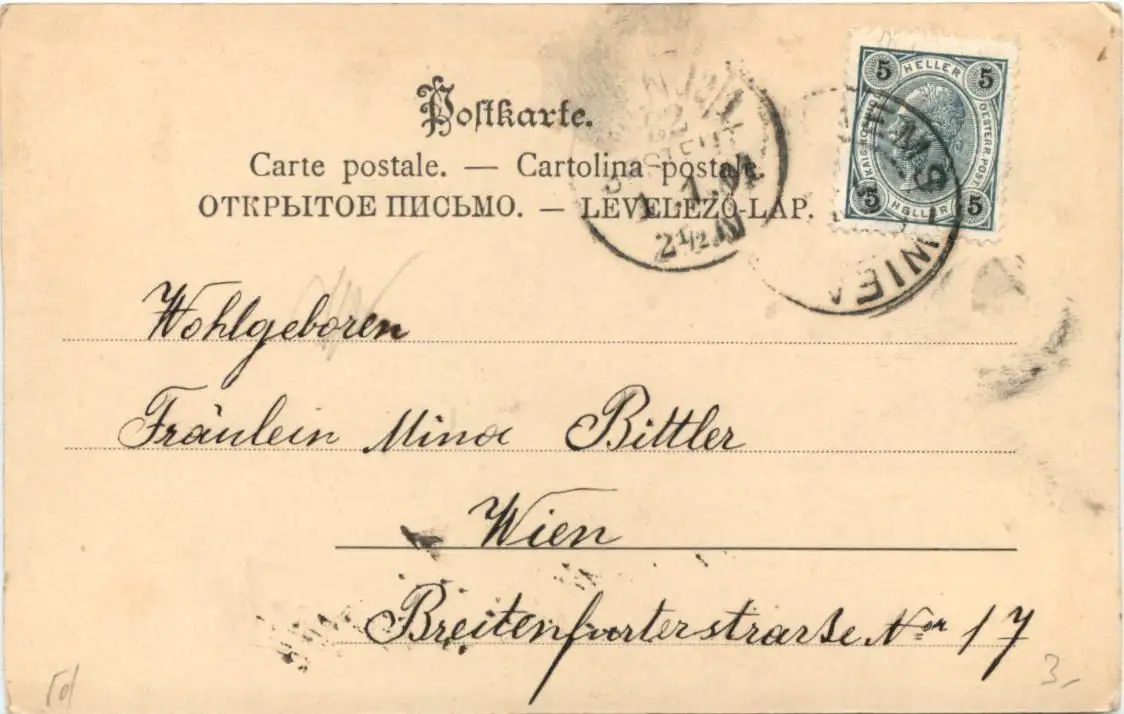 Postkarte.
Carte postale. — Cartolina postale.
ОТКРЫТОЕ ПИСЬМО. — LEVELEZŐ-LAP.
5 HELLER 5
KAIS. OESTERR. POST
5 HELLER 5
WIEN
Wohlgeboren
Fräulein Mina Bittler
Wien
Breitenfurterstrasse Nr 17
3-